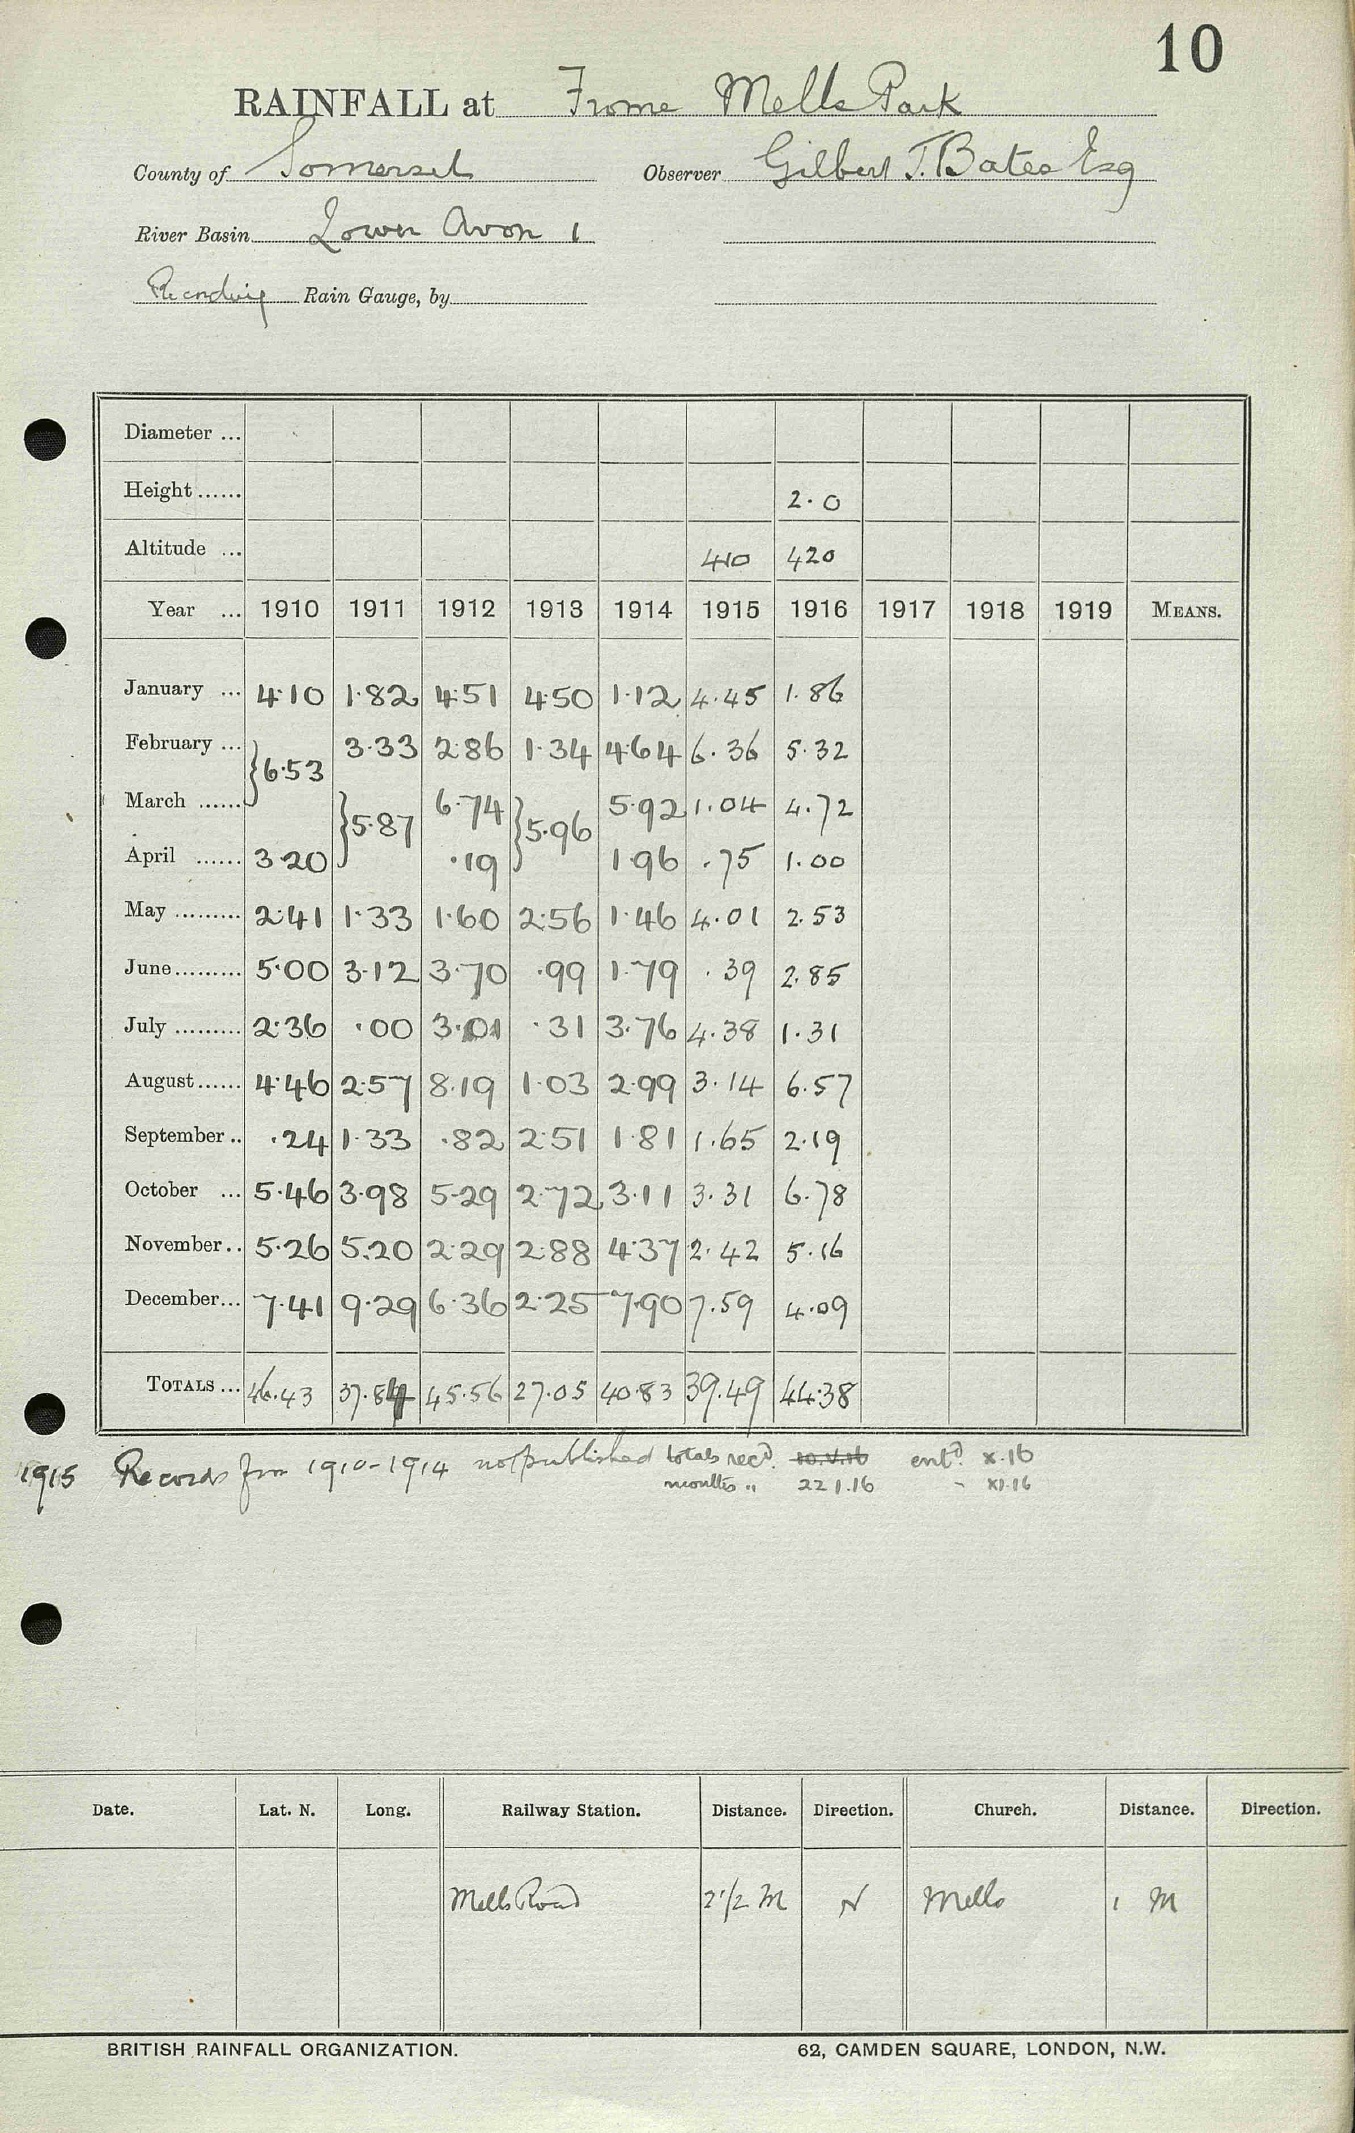 10
RAINFALL at Frome Mells Park
County of Somerset Observer Gilbert T. Bates Esq
River Basin Lower Avon 1
Recording Rain Gauge, by
Diameter ...
Height ...... 2.0
Altitude ... 410 420
Year ... 1910 1911 1912 1913 1914 1915 1916 1917 1918 1919 MEANS.
January ... 4.10 1.82 4.51 4.50 1.12 4.45 1.86
February ... }6.53 3.33 2.86 1.34 4.64 6.36 5.32
March ...... }5.87 6.74 }5.96 5.92 1.04 4.72
April ...... 3.20 .19 1.96 .75 1.00
May ......... 2.41 1.33 1.60 2.56 1.46 4.01 2.53
June ......... 5.00 3.12 3.70 .99 1.79 .39 2.85
July ......... 2.36 .00 3.01 .31 3.76 4.38 1.31
August ...... 4.46 2.57 8.19 1.03 2.99 3.14 6.57
September .. .24 1.33 .82 2.51 1.81 1.65 2.19
October ... 5.46 3.98 5.29 2.72 3.11 3.31 6.78
November .. 5.26 5.20 2.29 2.88 4.37 2.42 5.16
December ... 7.41 9.29 6.36 2.25 7.90 7.59 4.09
TOTALS ... 46.43 37.84 45.56 27.05 40.83 39.49 44.38
1915 Records from 1910-1914 not published totals recd. entd X.16
months " 22 1.16 - XI.16
Date. Lat. N. Long. Railway Station. Distance. Direction. Church. Distance. Direction.
Mells Road 2 1/2 M N Mells 1 M
BRITISH RAINFALL ORGANIZATION. 62, CAMDEN SQUARE, LONDON, N.W.